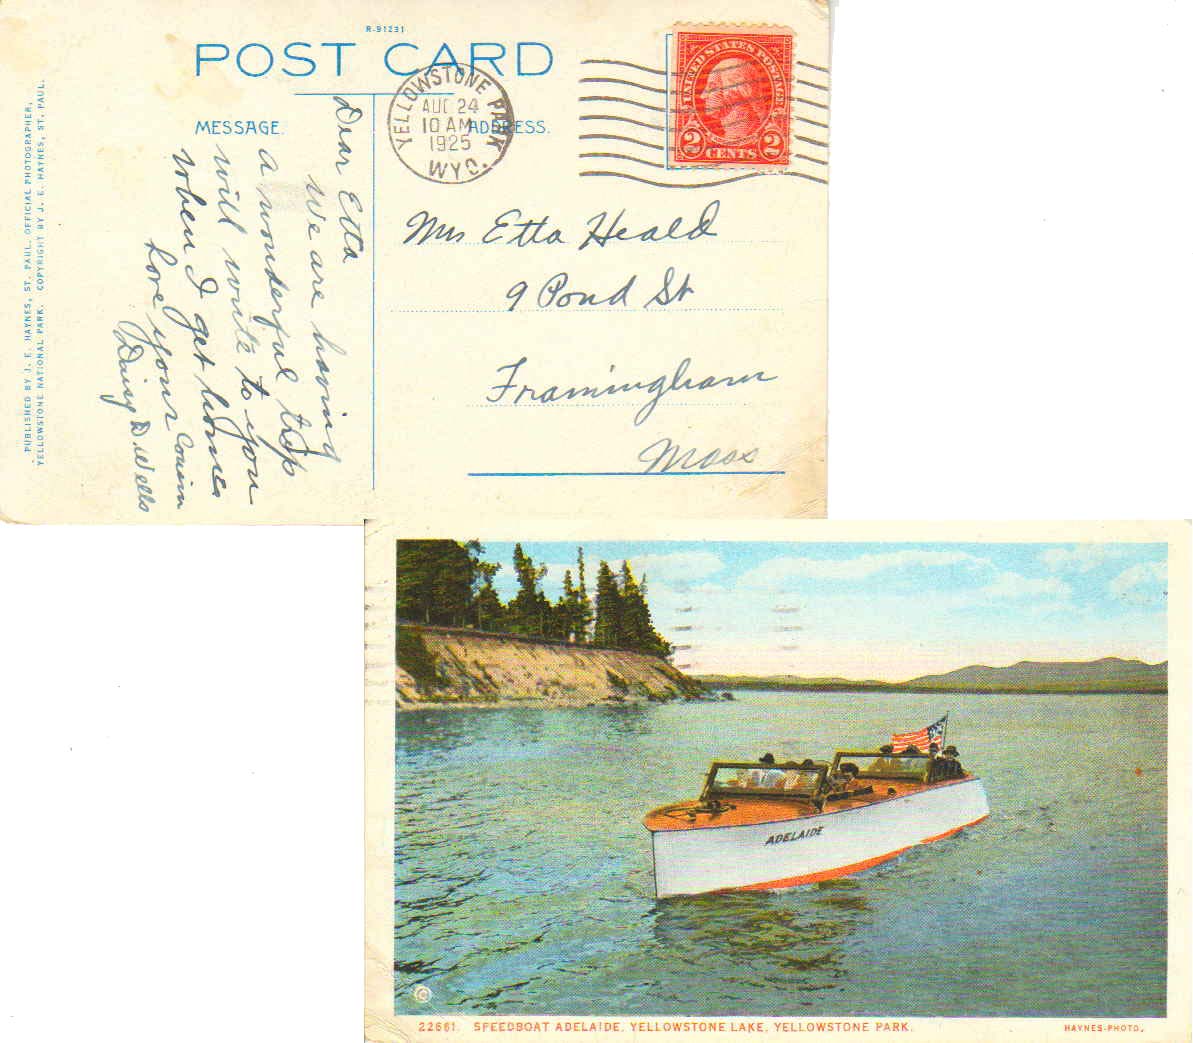 R-91231
POST CARD
MESSAGE.
ADDRESS.
YELLOWSTONE PARK.
AUG 24
10 AM
1925
WYO.
UNITED STATES POSTAGE
2 CENTS 2
PUBLISHED BY J. E. HAYNES, ST. PAUL, OFFICIAL PHOTOGRAPHER,
YELLOWSTONE NATIONAL PARK. COPYRIGHT BY J. E. HAYNES, ST. PAUL.
Dear Etta
We are having
a wonderful trip
will write to you
when I get home
Love your Cousin
Daisy D. Wells
Mrs Etta Heald
9 Pond St
Framingham
Mass
ADELAIDE
©
22661. SPEEDBOAT ADELAIDE, YELLOWSTONE LAKE, YELLOWSTONE PARK.
HAYNES-PHOTO.